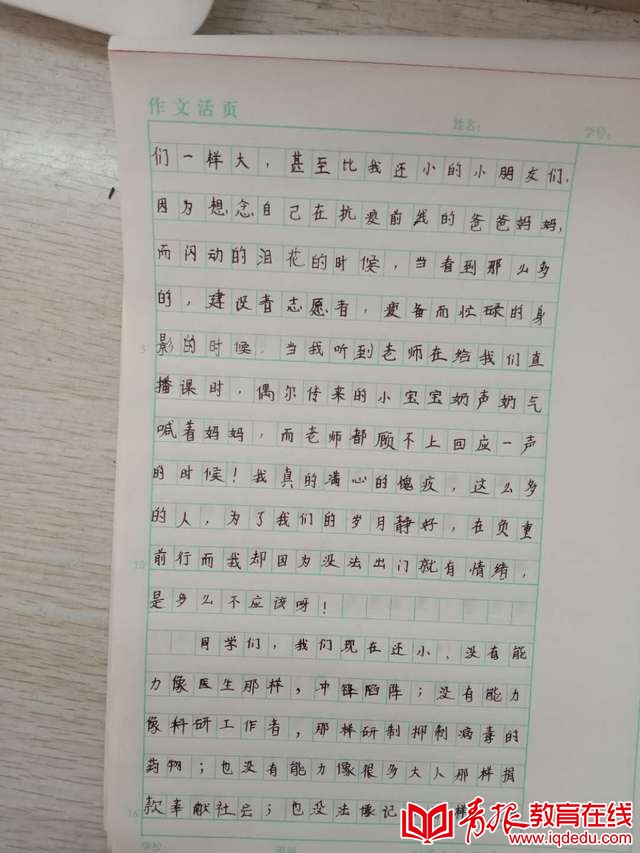 作文活页
姓名:
学号:
们一样大，甚至比我还小的小朋友们，
因为想念自己在抗疫前线的爸爸妈妈，
而闪动的泪花的时候，当看到那么多
的，建设者志愿者，疲备而忙碌的身
5
影的时候．当我听到老师在给我们直
播课时，偶尔传来的小宝宝奶声奶气
喊着妈妈，而老师都顾不上回应一声
的时候！我真的满心的愧疚，这么多
的人，为了我们的岁月静好，在负重
10
前行而我却因为没法出门就有情绪，
是多么不应该呀！
同学们，我们现在还小、没有能
力像医生那样，冲锋陷阵；没有能力
像科研工作者，那样研制抑制病毒的
药物；也没有能力像很多大人那样捐
16
款奉献社会；也没法像记
学校:
青报教育在线
www.iqdedu.com